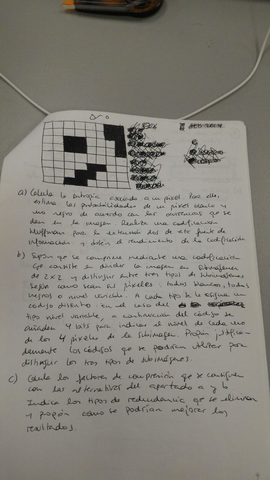 a) Calcule la entropía asociada a un pixel. Para ello,
estime las probabilidades de un pixel blanco y
uno negro de acuerdo con las ocurrencias que se
dan en la imagen. Realice una codificación
Huffman para la extensión dos de esta fuente de
información y obtén el rendimiento de la codificación
b) Supón que se comprime mediante una codificación
que consiste en dividir la imagen en subimágenes
de 2x2 y distinguir entre tres tipos de subimágenes
según como sean sus píxeles: todos blancos, todos
negros o nivel variable. A cada tipo se le asigna un
código distinto en el caso del
tipo nivel variable, a continuación del código se
añaden 4 bits para indicar el nivel de cada uno
de los 4 píxeles de la subimagen. Propón
los códigos que se podrían utilizar para
distinguir los tres tipos de subimágenes.
c) Calcule los factores de compresión que se consiguen
con las alternativas del apartado a y b.
Indica los tipos de redundancia que se eliminan
y propón como se podrían mejorar los
resultados.